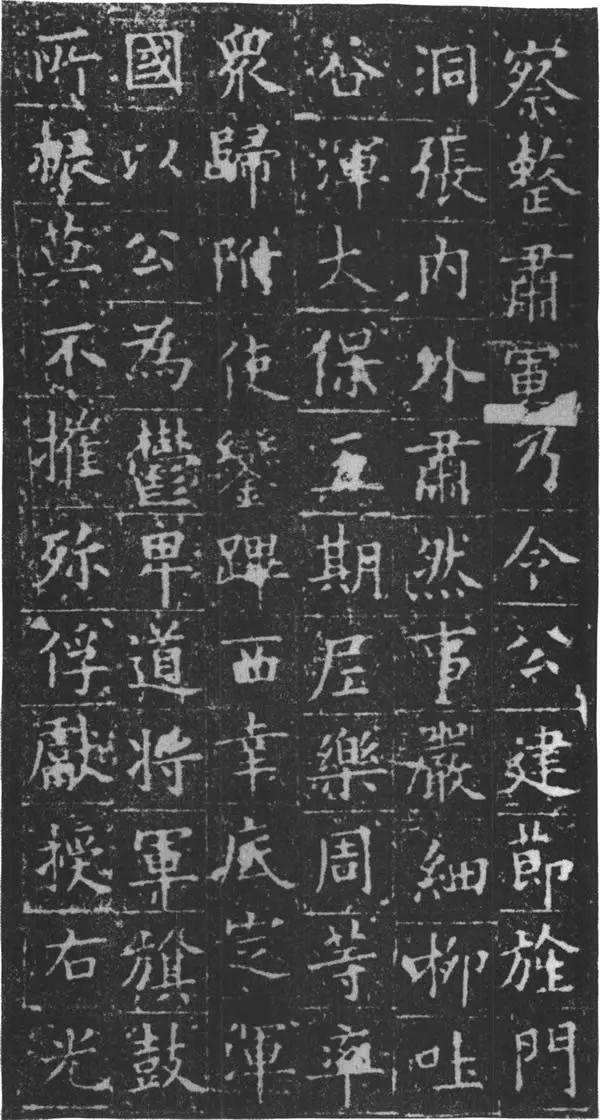 察整肅軍乃令公建節旌門
洞張內外肅然事嚴細柳吐
谷渾太保五期尼樂周等率
衆歸附使鑾蹕西幸底定渾
國以公為鬱卑道將軍旗鼓
所振莫不摧殄俘獻授右光